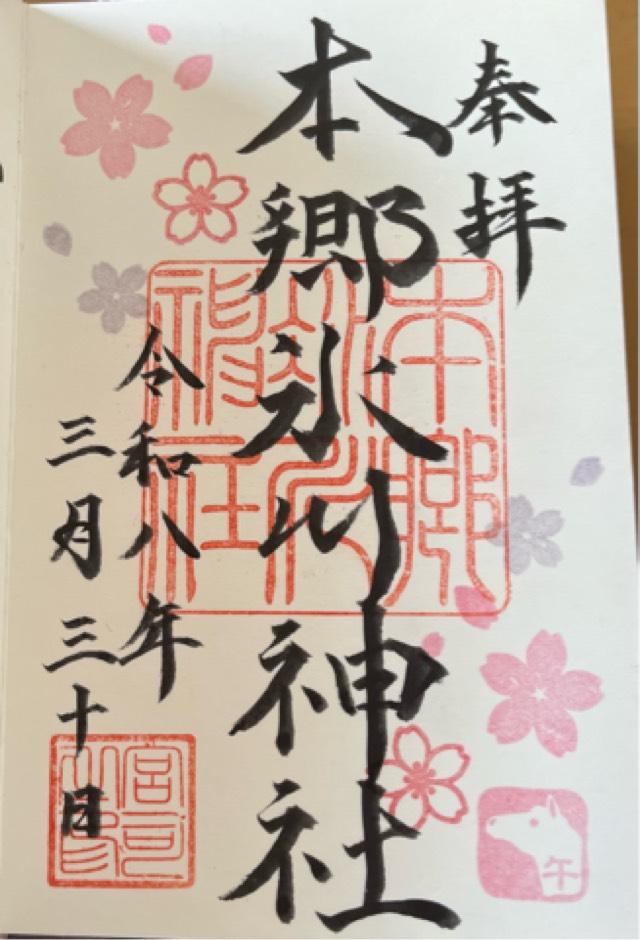 奉拝
本郷氷川神社
令和八年
三月三十日
本郷
氷川
神社
午